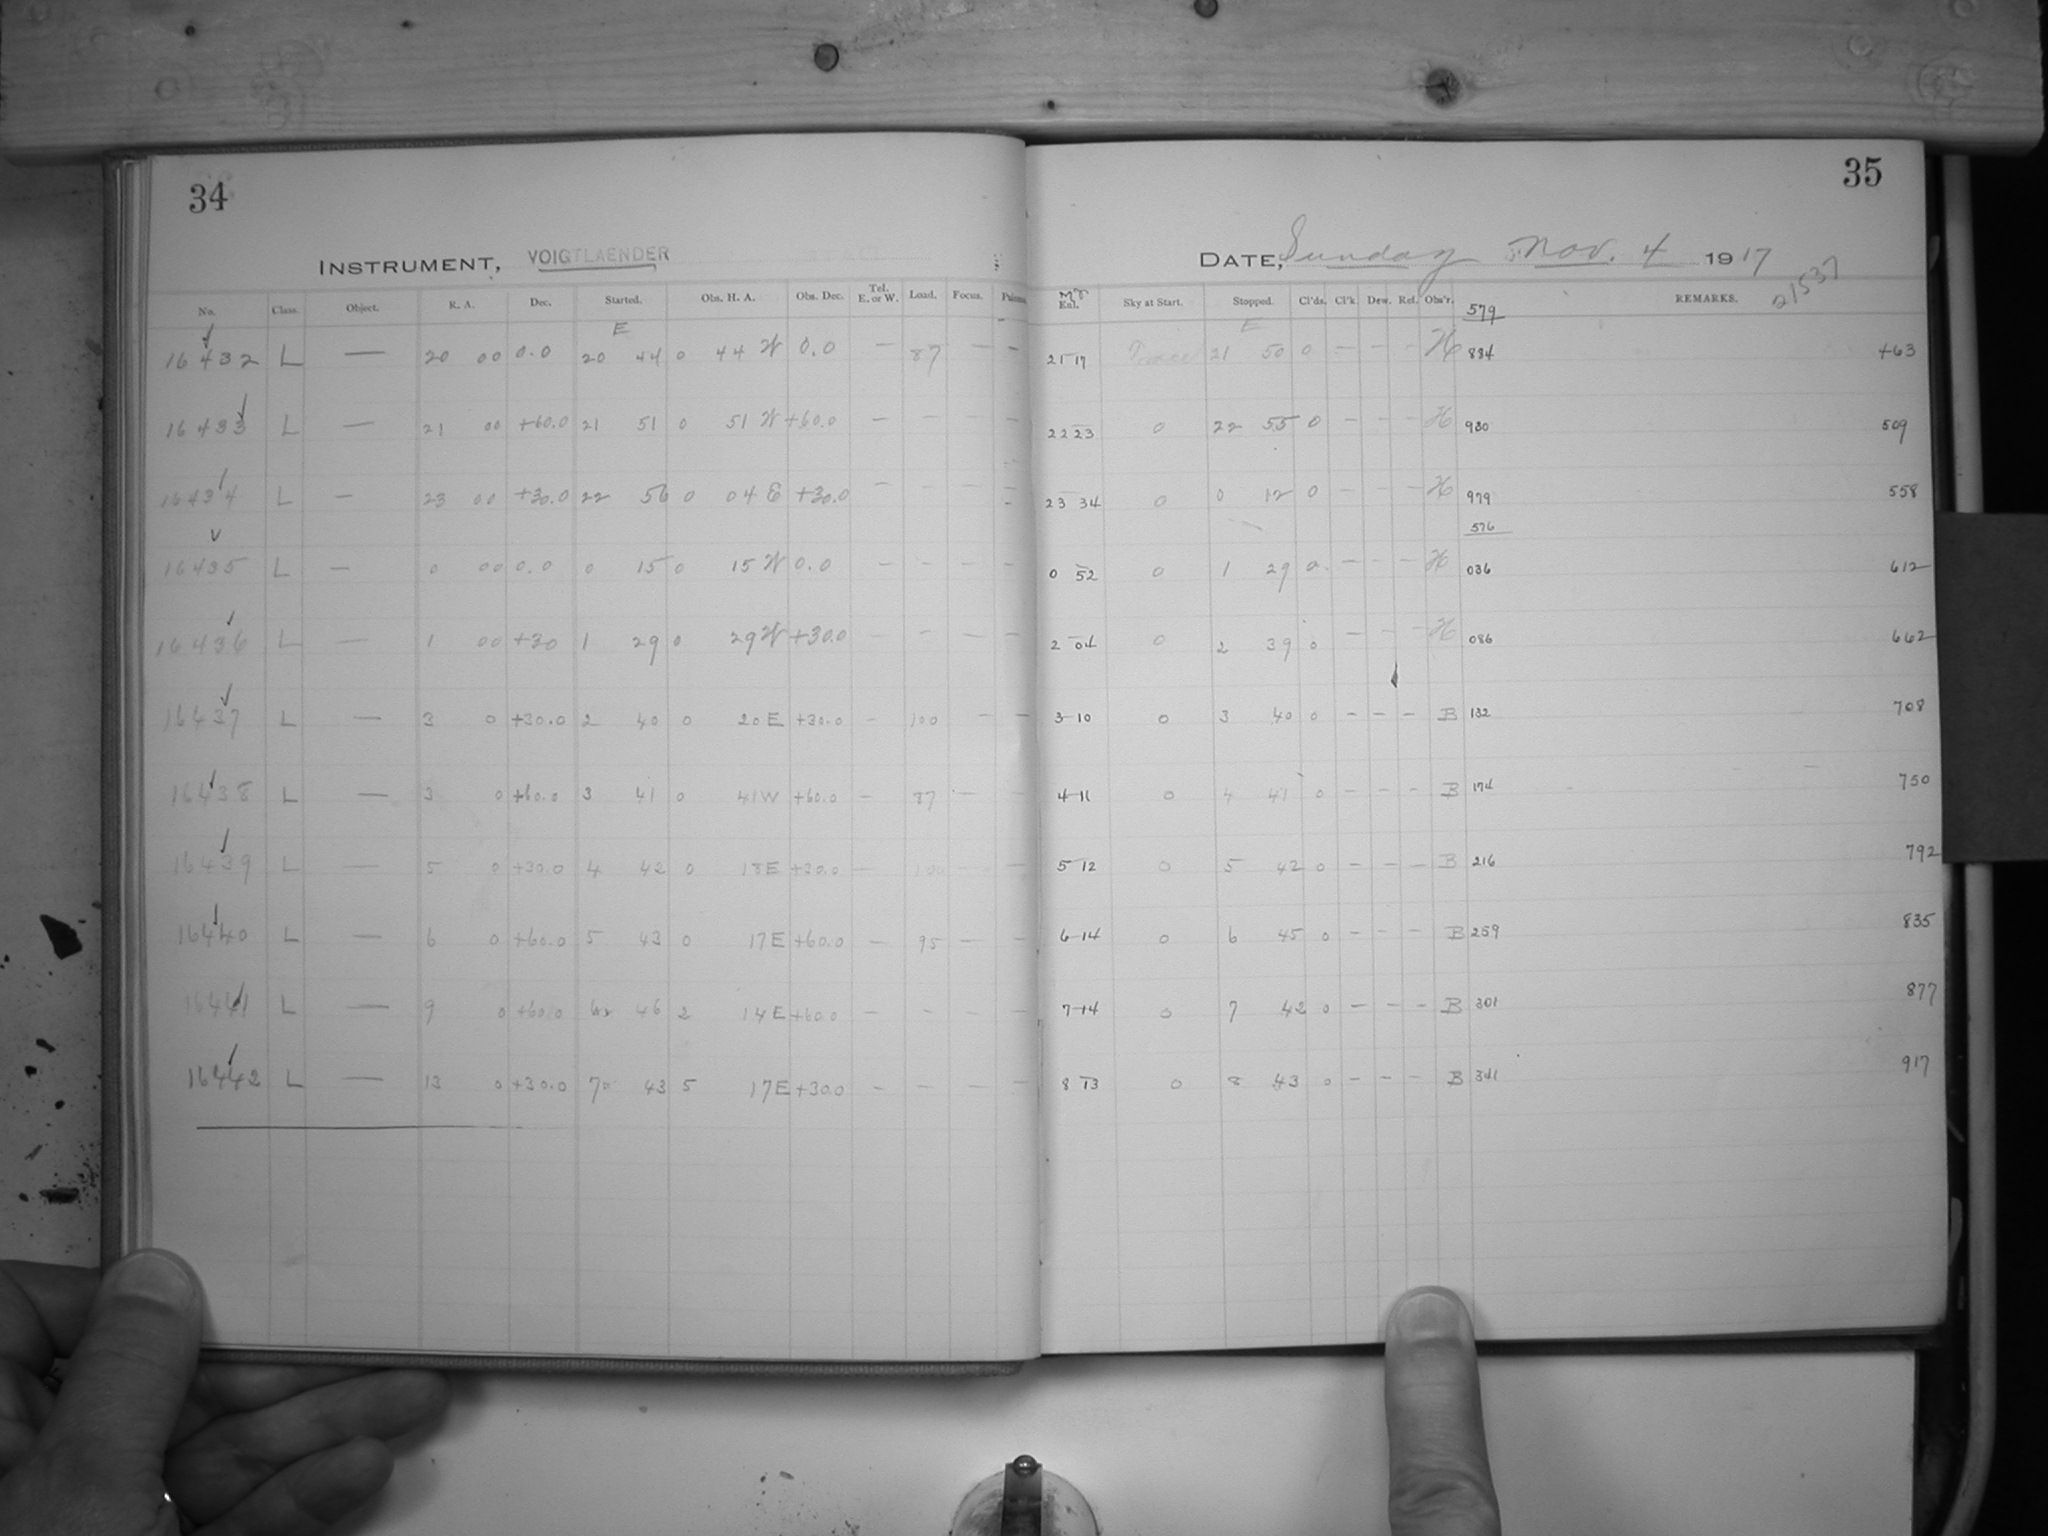 34
INSTRUMENT, VOIGTLAENDER
No. Class. Object. R. A. Dec. Started. Obs. H. A. Obs. Dec. Tel. E. or W. Load. Focus.
E
16432 L — 20 00 0.0 20 44 0 44 W 0.0 — 87 — —
16433 L — 21 00 +60.0 21 51 0 51 W +60.0 — — — —
16434 L — 23 00 +30.0 22 56 0 04 E +30.0 — — — —
16435 L — 0 00 0.0 0 15 0 15 W 0.0 — — — —
16436 L — 1 00 +30 1 29 0 29 W +30.0 — — — —
16437 L — 3 0 +30.0 2 40 0 20 E +30.0 — 100 — —
16438 L — 3 0 +60.0 3 41 0 41 W +60.0 — 87 — —
16439 L — 5 0 +30.0 4 42 0 18 E +30.0 — 100 — —
16440 L — 6 0 +60.0 5 43 0 17 E +60.0 — 95 — —
16441 L — 9 0 +60.0 6 46 2 14 E +60.0 — — — —
16442 L — 13 0 +30.0 7 43 5 17 E +30.0 — — — —
35
DATE, Sunday Nov. 4 1917
21537
MT Sky at Start. Stopped. Cl'ds. Cl'k. Dew. Ref. Obs'r. 579 REMARKS.
E
21 17 21 50 0 — — — H 884 463
22 23 0 22 55 0 — — — H 930 509
23 34 0 0 12 0 — — — H 979 558
576
0 52 0 1 29 0 — — — H 036 612
2 04 0 2 39 0 — — — H 086 662
3 10 0 3 40 0 — — — B 132 708
4 11 0 4 41 0 — — — B 174 750
5 12 0 5 42 0 — — — B 216 792
6 14 0 6 45 0 — — — B 259 835
7 14 0 7 42 0 — — — B 301 877
8 13 0 8 43 0 — — — B 341 917